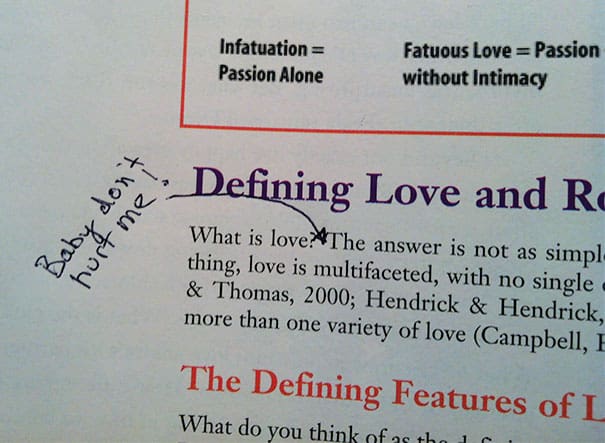 Infatuation =
Passion Alone
Fatuous Love = Passion
without Intimacy
Baby don't
hurt me!
Defining Love and Ro
What is love? The answer is not as simpl
thing, love is multifaceted, with no single
& Thomas, 2000; Hendrick & Hendrick,
more than one variety of love (Campbell,
The Defining Features of L
What do you think of as the